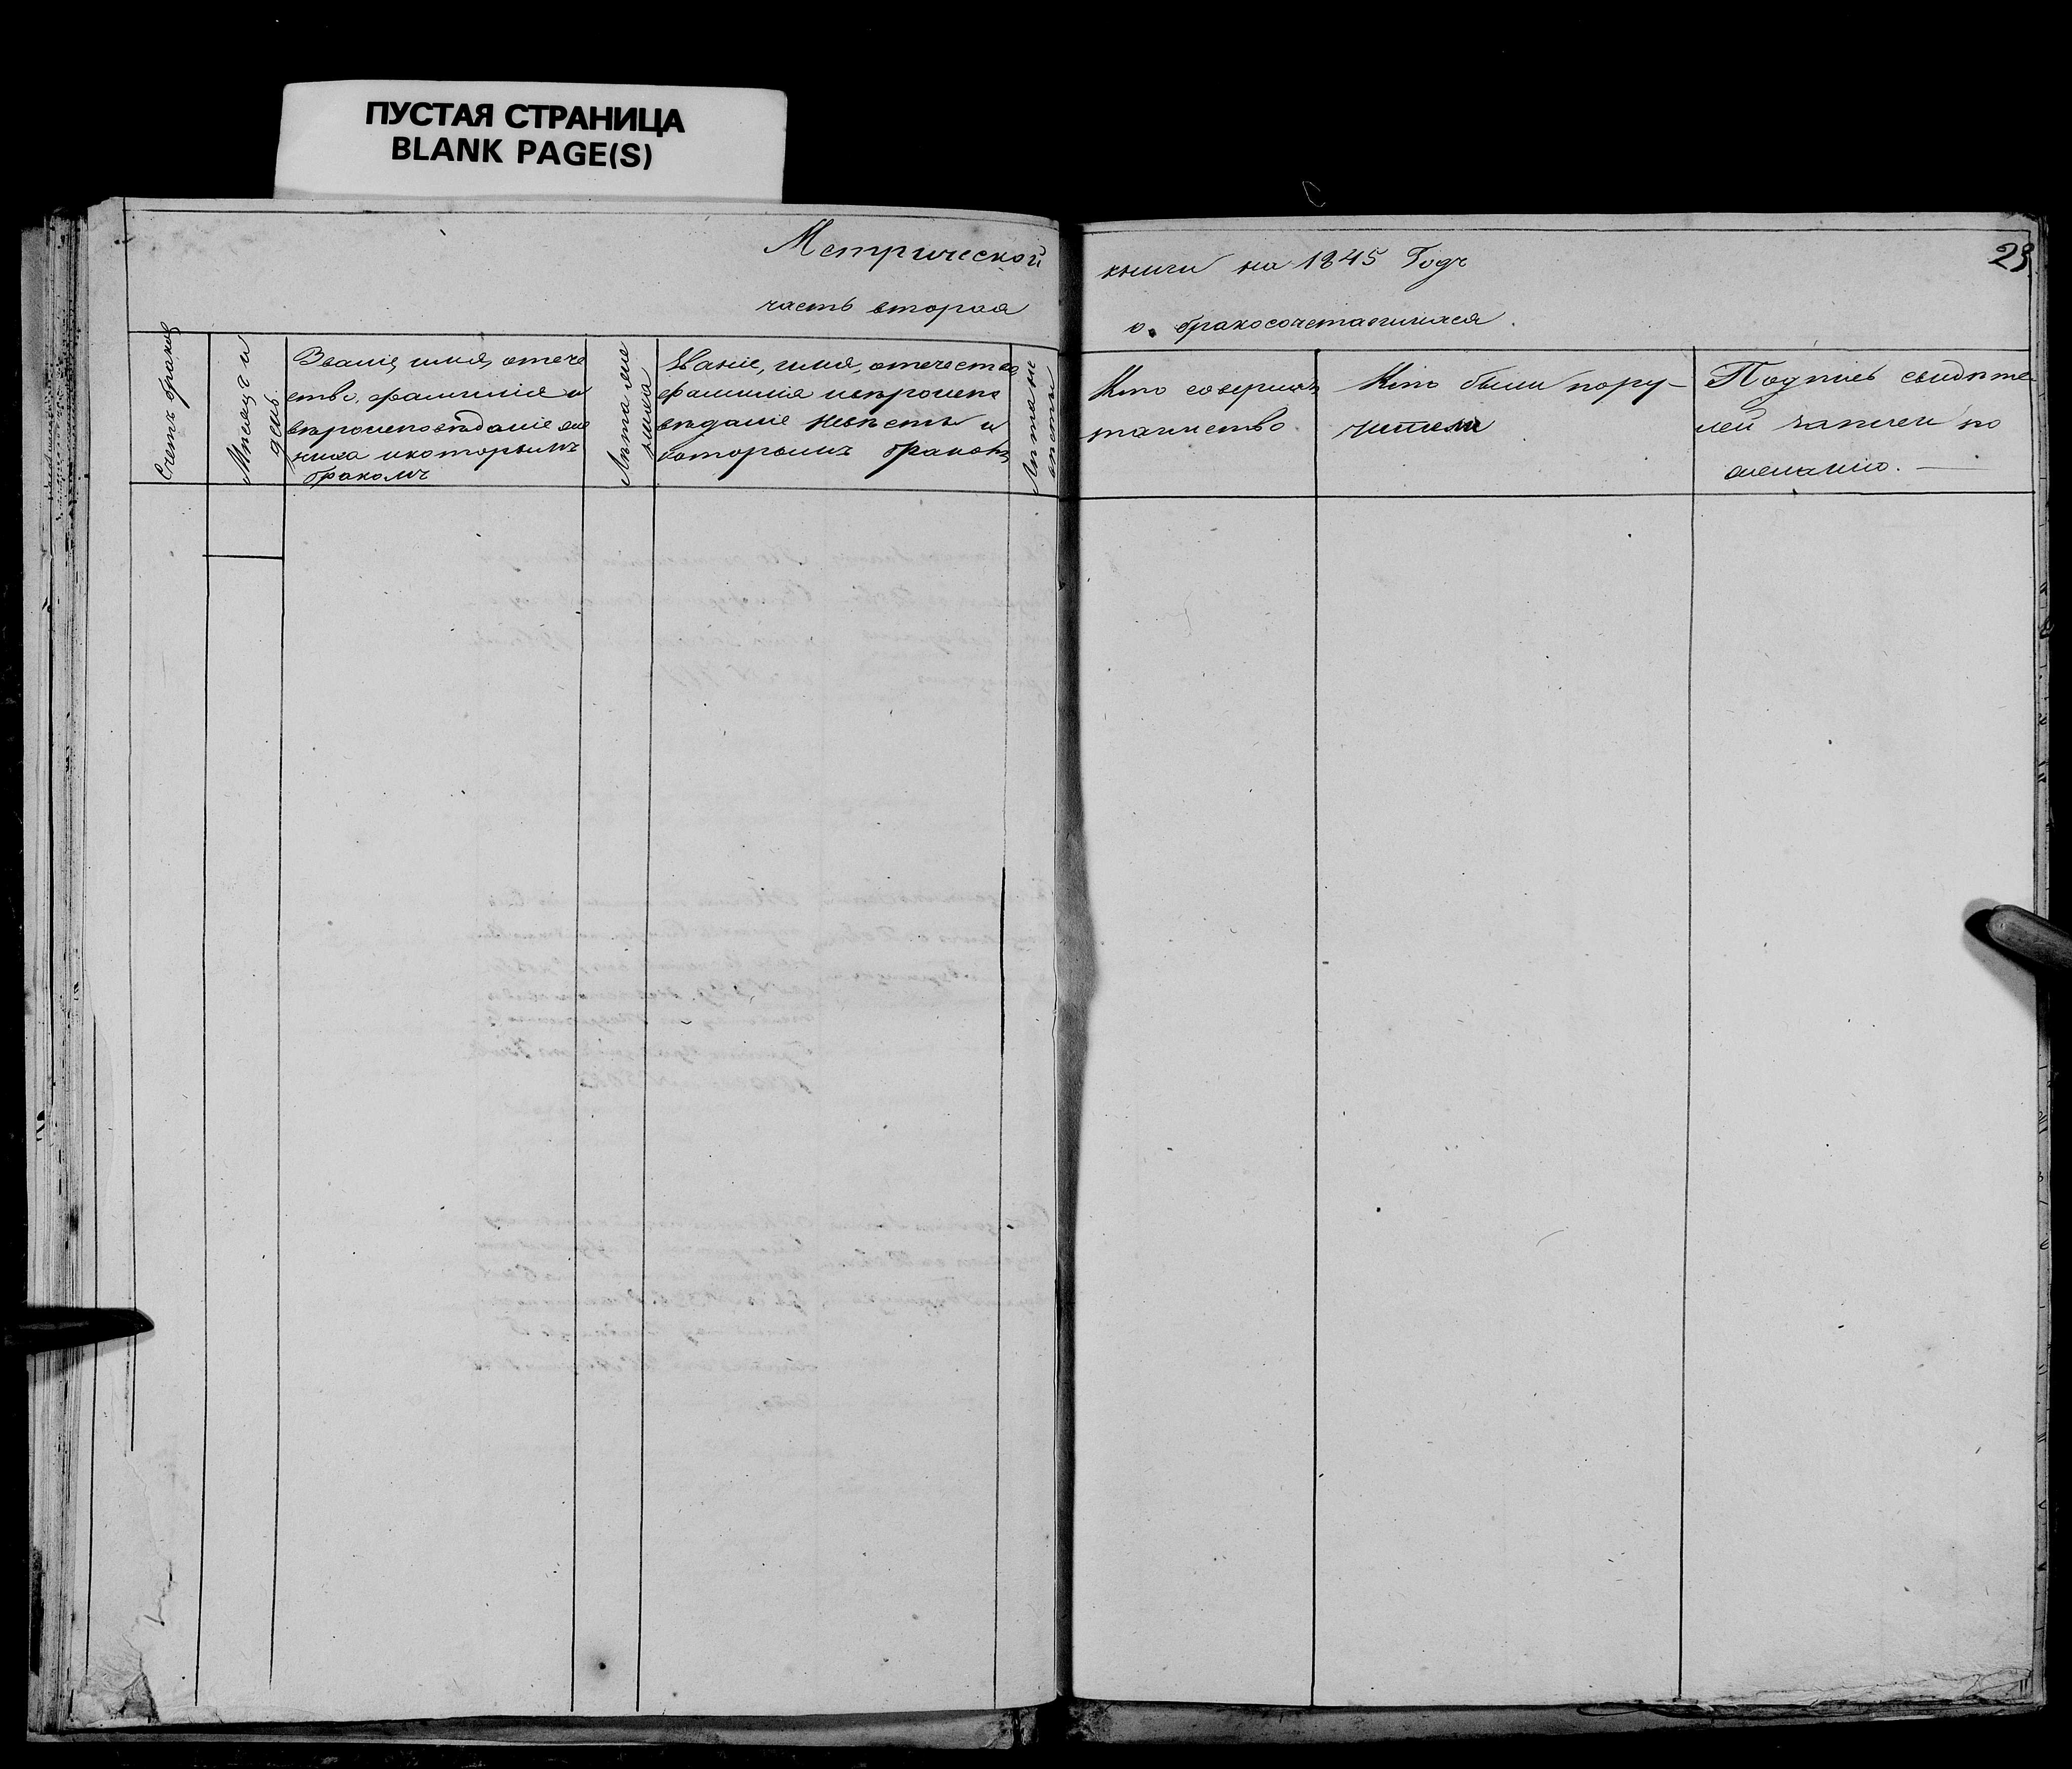 ПУСТАЯ СТРАНИЦА
BLANK PAGE(S)
Метрической
часть вторая
книги на 1845 Годъ
о бракосочетавшихся.
29
Счетъ браковъ
Мѣсяцъ и
день
Званіе, имя, отече
ство, фамилія и
вѣроисповѣданіе же
ниха и которымъ
бракомъ
Лѣта же
ниха
Званіе, имя, отечество
фамилія и вѣроиспо
вѣданіе невѣсты и
которымъ бракомъ
Лѣта не
вѣсты
Кто совершалъ
таинство
Кто были пору-
чители
Подпись свидѣте
лей записи по
желанію.